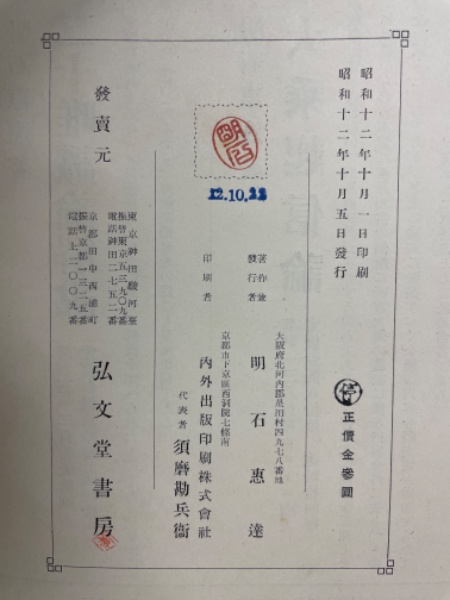 昭和十二年十月一日印刷
昭和十二年十月五日發行
停 正價金參圓
12.10.22
著作兼
發行者
大阪府北河內郡星田村四九七八番地
明石惠達
印刷者
京都市下京區西洞院七條南
內外出版印刷株式會社
代表者 須磨勘兵衞
發賣元
東京神田駿河臺
振替東京五三九〇九番
電話神田二七五二番
京都田中西浦町
振替京都一三二五番
電話上二〇〇九番
弘文堂書房